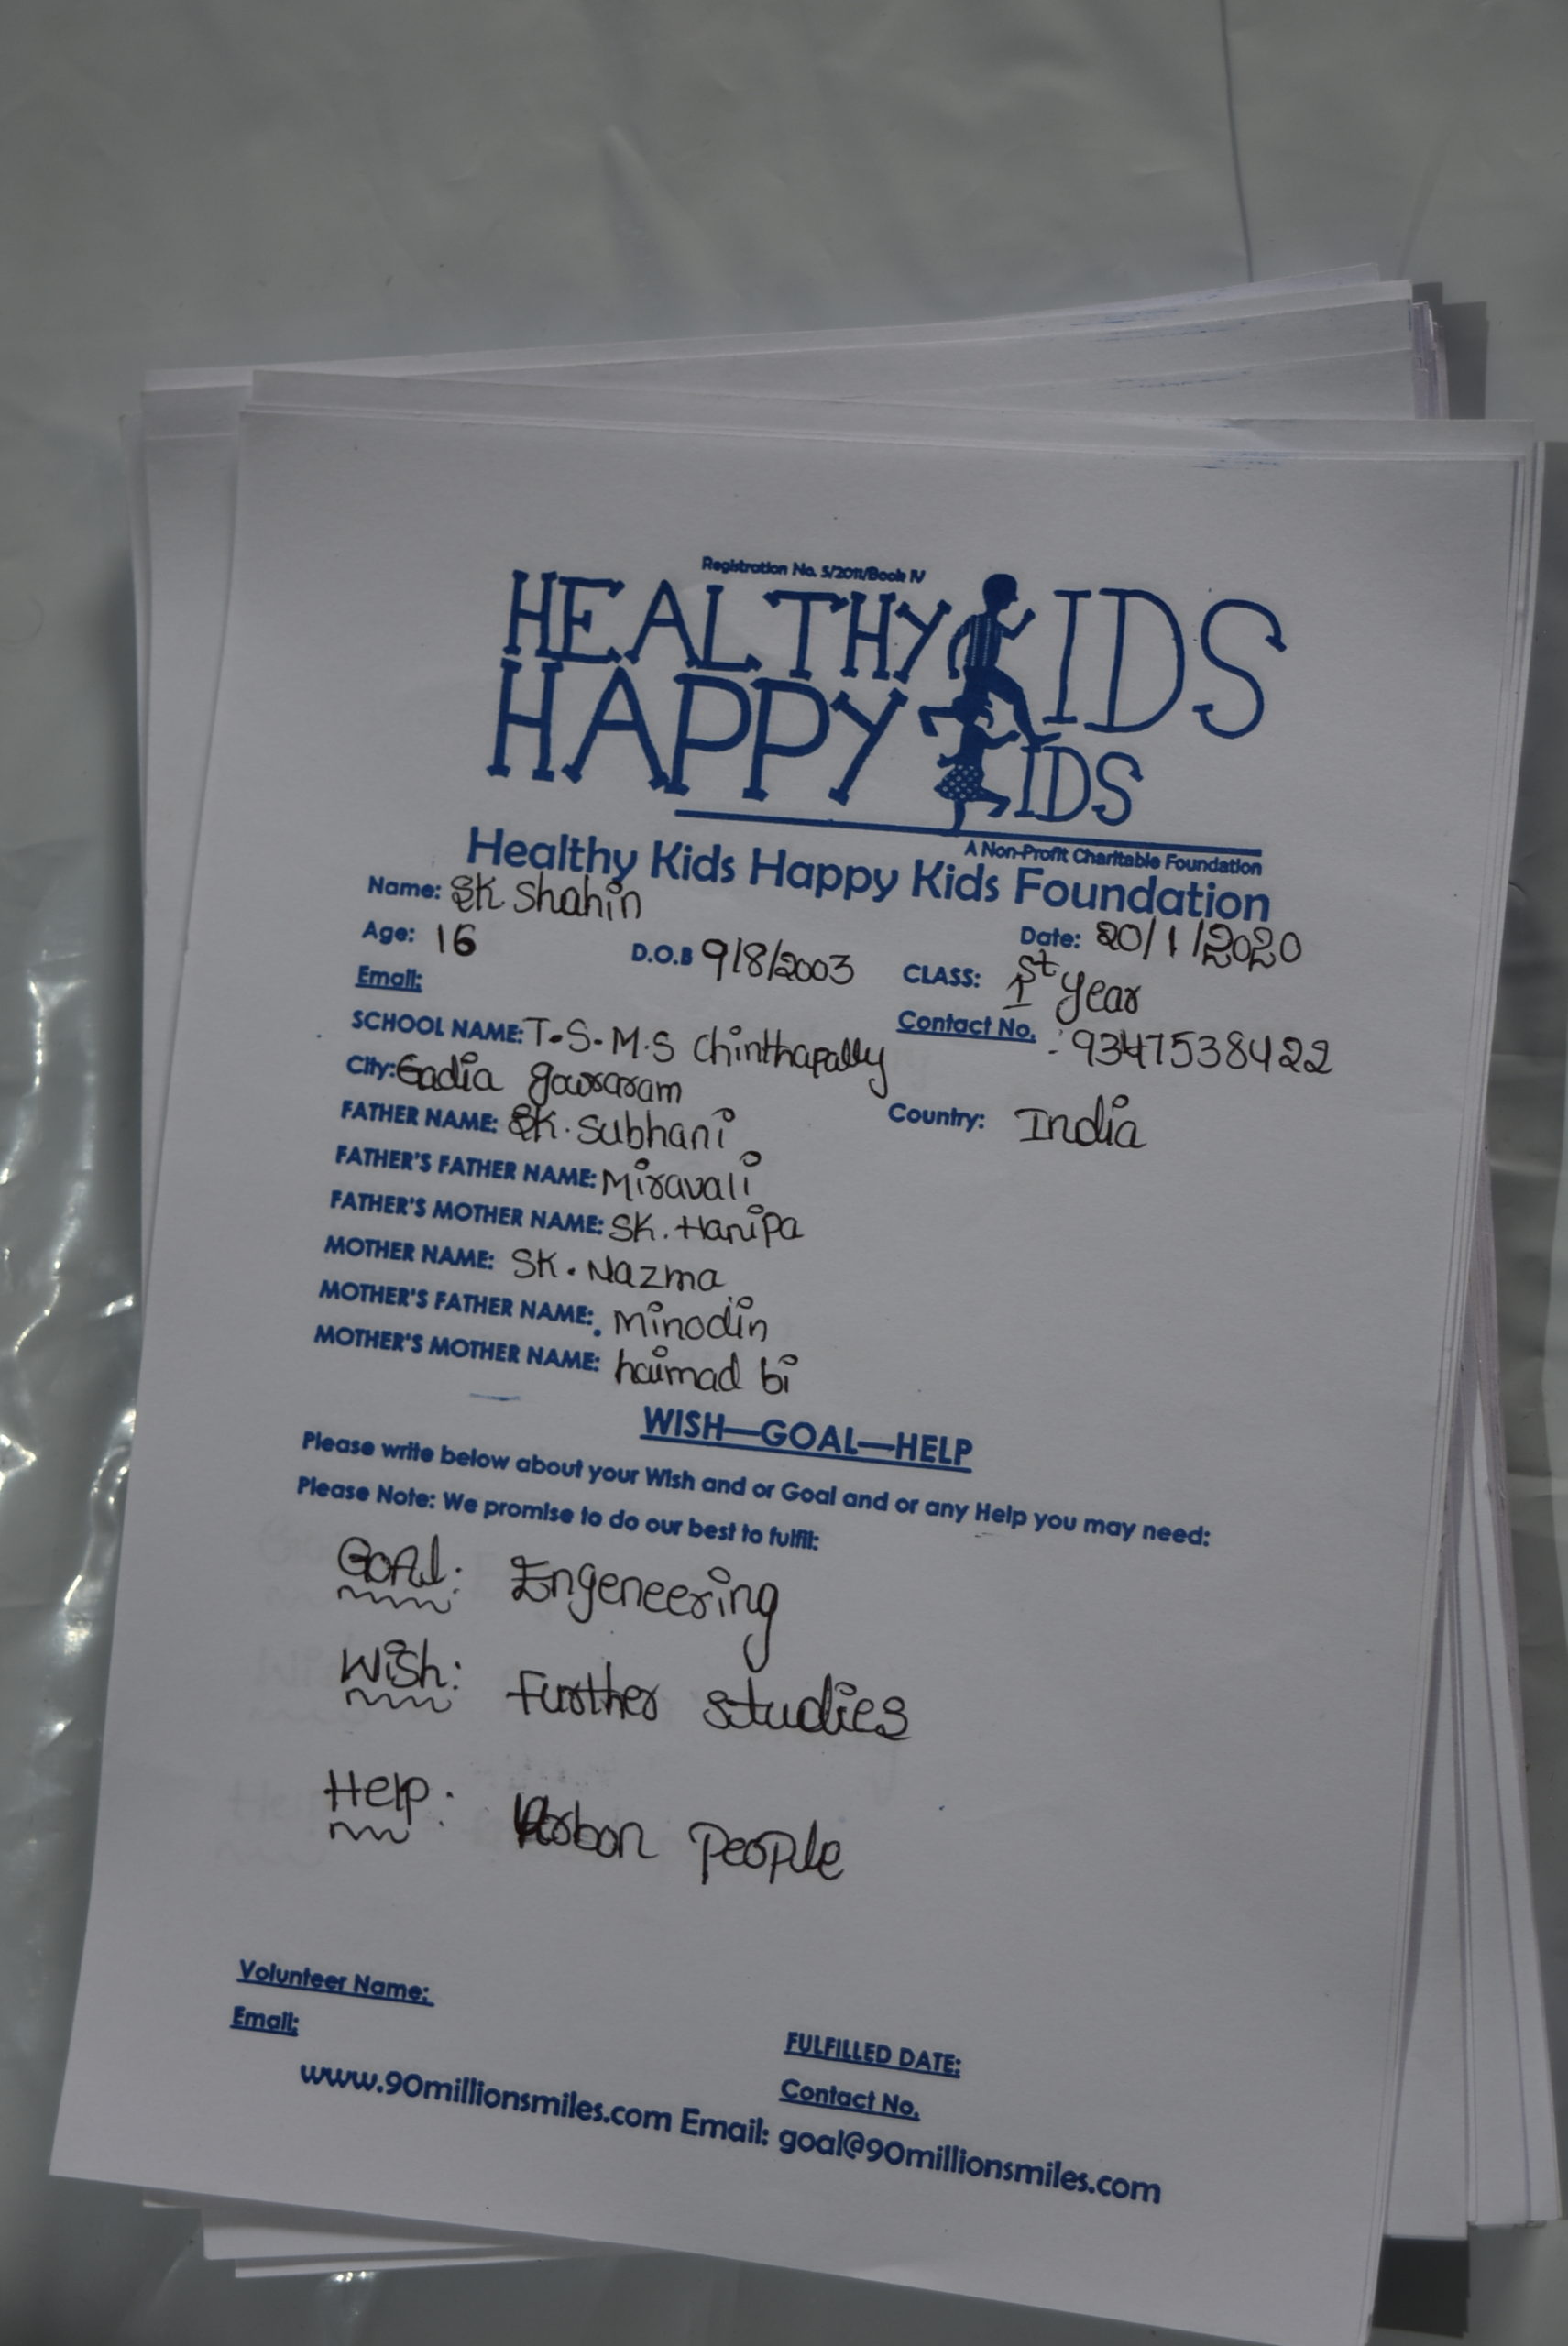 Registration No. 5/2011/Book IV
HEALTHY KIDS
HAPPY KIDS
A Non-Profit Charitable Foundation
Healthy Kids Happy Kids Foundation
Name: SK Shahin
Date: 20/1/2020
Age: 16 D.O.B 9/8/2003 CLASS: 1st year
Email: Contact No. : 9347538422
SCHOOL NAME: T.S.M.S Chinthapally
City: Gadia gowraram Country: India
FATHER NAME: SK. Subhani
FATHER'S FATHER NAME: Miravali
FATHER'S MOTHER NAME: SK. Hanipa
MOTHER NAME: SK. Nazma
MOTHER'S FATHER NAME: Minodin
MOTHER'S MOTHER NAME: haimad bi
WISH—GOAL—HELP
Please write below about your Wish and or Goal and or any Help you may need:
Please Note: We promise to do our best to fulfil:
Goal: Engeneering
Wish: Further studies
Help: people
Volunteer Name:
Email: FULFILLED DATE:
Contact No.
www.90millionsmiles.com Email: goal@90millionsmiles.com